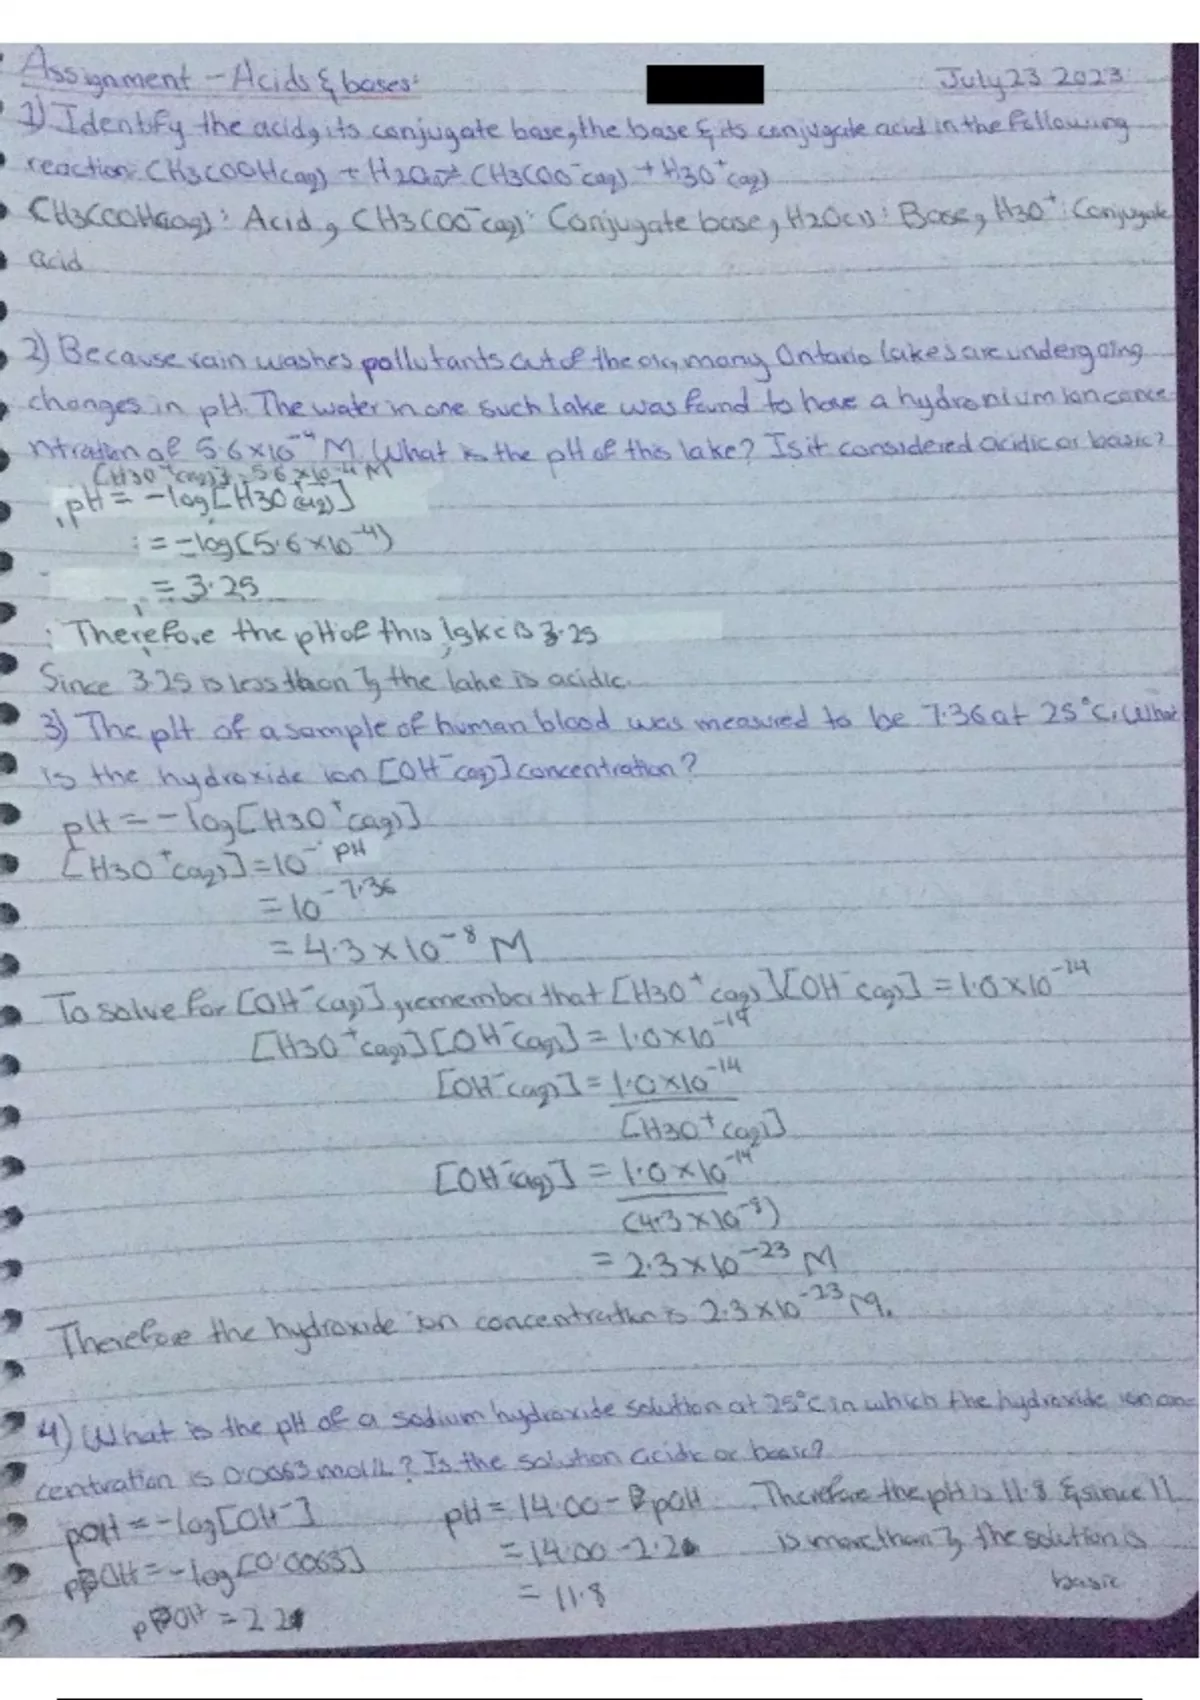 Assignment - Acids & bases: July 23 2023
1) Identify the acid, its conjugate base, the base & its conjugate acid in the following
reaction: CH3COOH(aq) + H2O(l) ⇌ CH3COO⁻(aq) + H3O⁺(aq)
CH3COOH(aq): Acid, CH3COO⁻(aq): Conjugate base, H2O(l): Base, H3O⁺: Conjugate
acid
2) Because rain washes pollutants out of the air, many Ontario lakes are undergoing
changes in pH. The water in one such lake was found to have a hydronium ion conce-
ntration of 5.6×10⁻⁴ M. What is the pH of this lake? Is it considered acidic or basic?
[H3O⁺(aq)] = 5.6×10⁻⁴ M
pH = -log[H3O(aq)]
= -log(5.6×10⁻⁴)
= 3.25
Therefore the pH of this lake is 3.25
Since 3.25 is less than 7, the lake is acidic.
3) The pH of a sample of human blood was measured to be 7.36 at 25°C. What
is the hydroxide ion [OH⁻(aq)] concentration?
pH = -log[H3O⁺(aq)]
[H3O⁺(aq)] = 10⁻pH
= 10⁻⁷·³⁶
= 4.3×10⁻⁸ M
To solve for [OH⁻(aq)], remember that [H3O⁺(aq)][OH⁻(aq)] = 1.0×10⁻¹⁴
[H3O⁺(aq)][OH⁻(aq)] = 1.0×10⁻¹⁴
[OH⁻(aq)] = 1.0×10⁻¹⁴
[H3O⁺(aq)]
[OH⁻(aq)] = 1.0×10⁻¹⁴
(4.3×10⁻⁸)
= 2.3×10⁻²³ M
Therefore the hydroxide ion concentration is 2.3×10⁻²³ M.
4) What is the pH of a sodium hydroxide solution at 25°C in which the hydroxide ion con-
centration is 0.0063 mol/L? Is the solution acidic or basic?
pOH = -log[OH⁻] pH = 14.00 - pOH Therefore the pH is 11.8 & since 11
pOH = -log[0.0063] = 14.00 - 2.20 is more than 7, the solution is
= 11.8 basic
pOH = 2.2